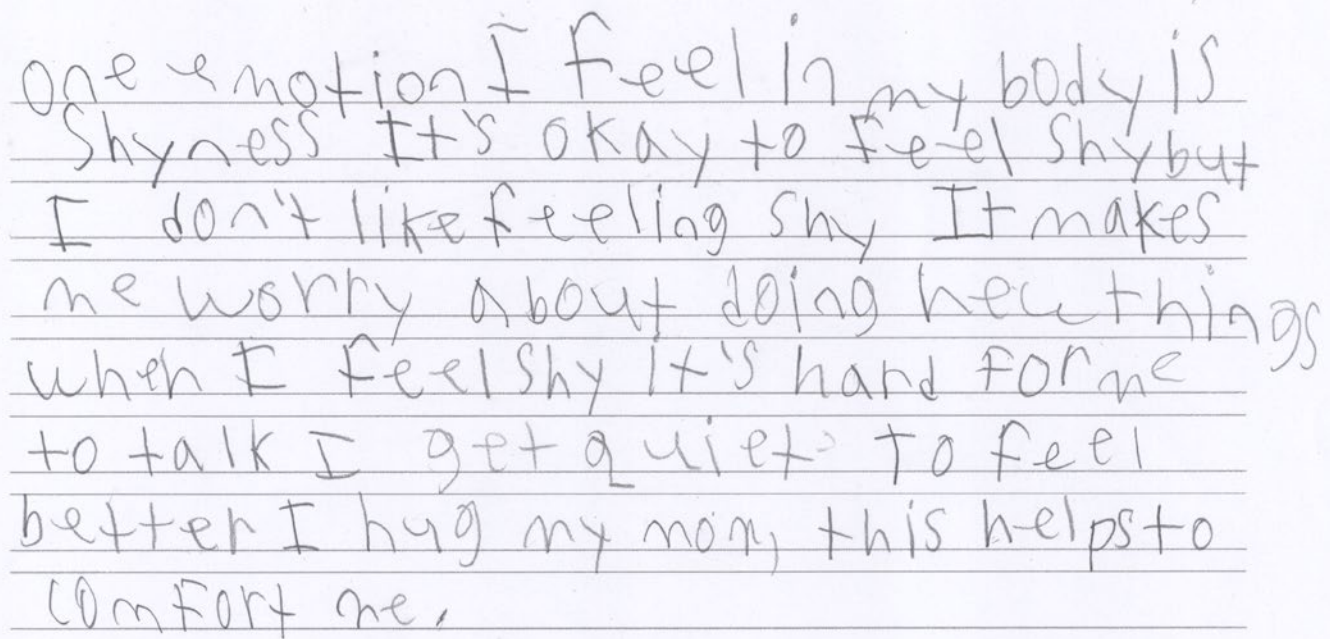 one emotion I feel in my body is
Shyness It's okay to feel shy but
I don't like feeling shy It makes
me worry about doing new things
when I feel shy it's hard for me
to talk I get quiet To feel
better I hug my mom, this helps to
comfort me.